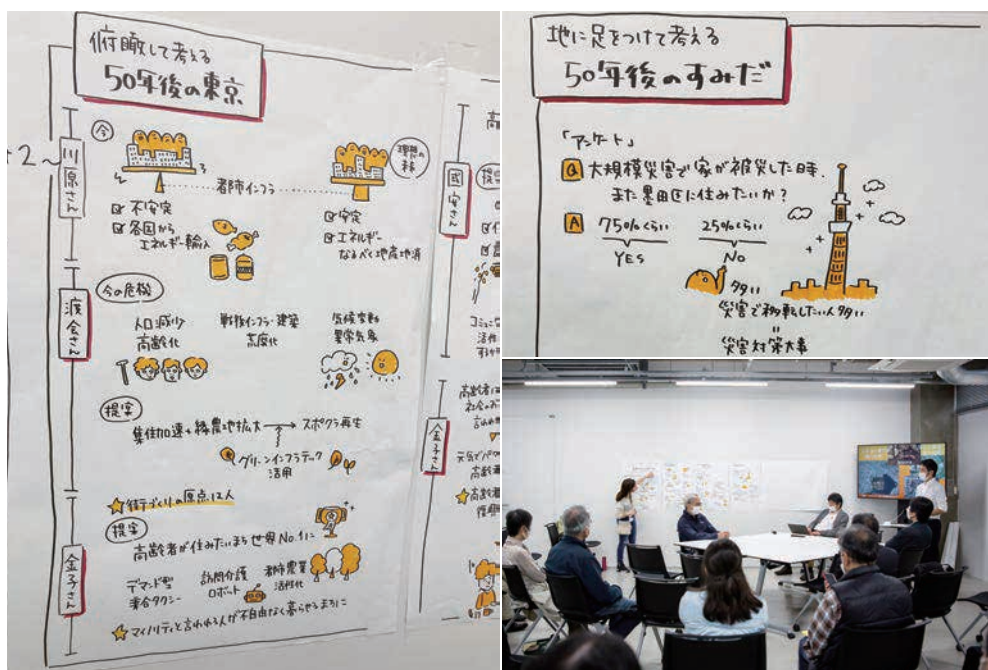 俯瞰して考える
50年後の東京
川原さん
今
理想の
未来
都市インフラ
不安定
各国から
エネルギー輸入
安定
エネルギー
なるべく地産地消
渡会さん
今の危機
人口減少
高齢化
戦後インフラ・建築
高度化
気候変動
異常気象
提案
集住加速+緑農地拡大→スポンジ再生
グリーンインフラテック
活用
街づくりの原点は人
金子さん
提案
高齢者が住みたいまち世界No.1に
デマンド型
乗合タクシー
訪問介護
ロボット
都市農業
活性化
マイノリティと言われる人が不自由なく暮らせるまちに
國安さん
金子さん
地に足をつけて考える
50年後のすみだ
「アンケート」
Q 大規模災害で家が被災した時、
また墨田区に住みたいか?
A 75%くらい 25%くらい
YES NO
多い
災害で移転したい人多い
=
災害対策大事